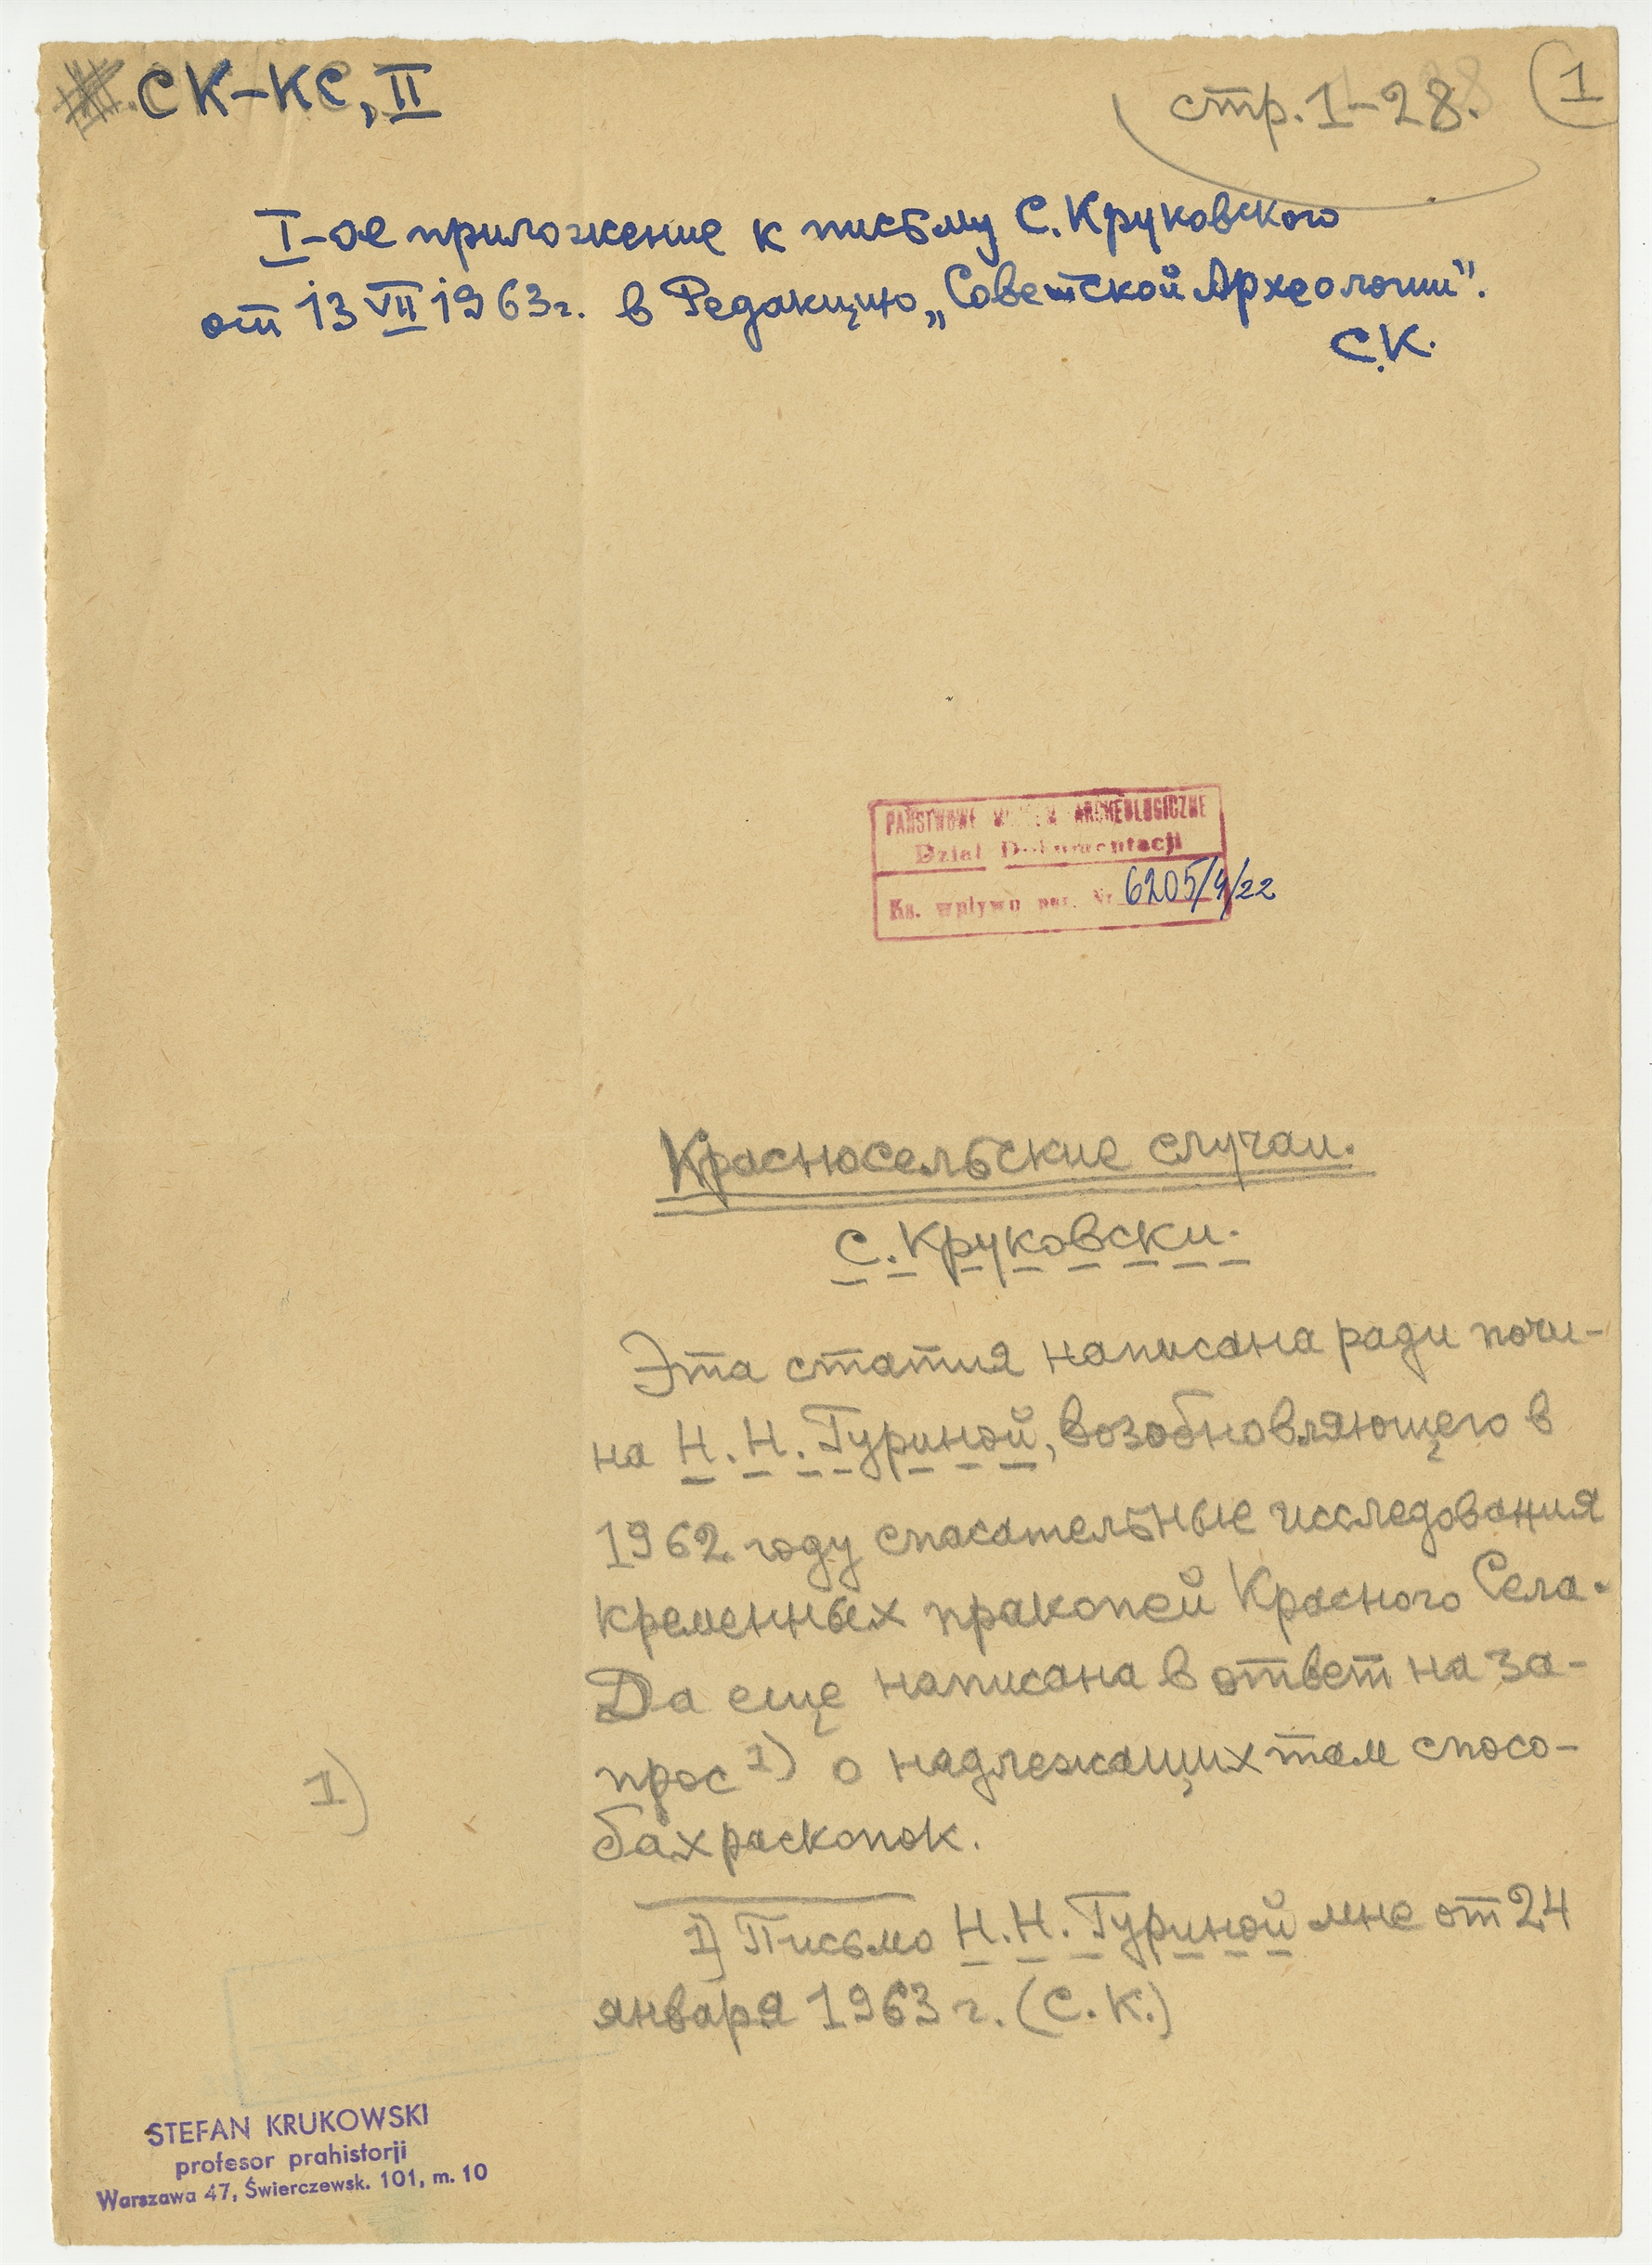 СК–КС, II
стр. 1–28.
1
I–ое приложение к письму С. Круковского
от 13 VII 1963 г. в Редакцию „Советской Археологии”.
С.К.
PAŃSTWOWE MUZEUM ARCHEOLOGICZNE
Dział Dokumentacji
Ks. wpływu Nr 6205/4/22
Красносельские случаи.
С. Круковски.
Эта статия написана ради почи-
на Н. Н. Гуриной, возобновляющего в
1962 году спасательные исследования
кременных пракопей Красного Села.
Да еще написана в ответ на за-
прос 1) о надлежащих там спосо-
бах раскопок.
1)
1) Письмо Н. Н. Гуриной мне от 24
января 1963 г. (С. К.)
STEFAN KRUKOWSKI
profesor prahistorji
Warszawa 47, Świerczewsk. 101, m. 10